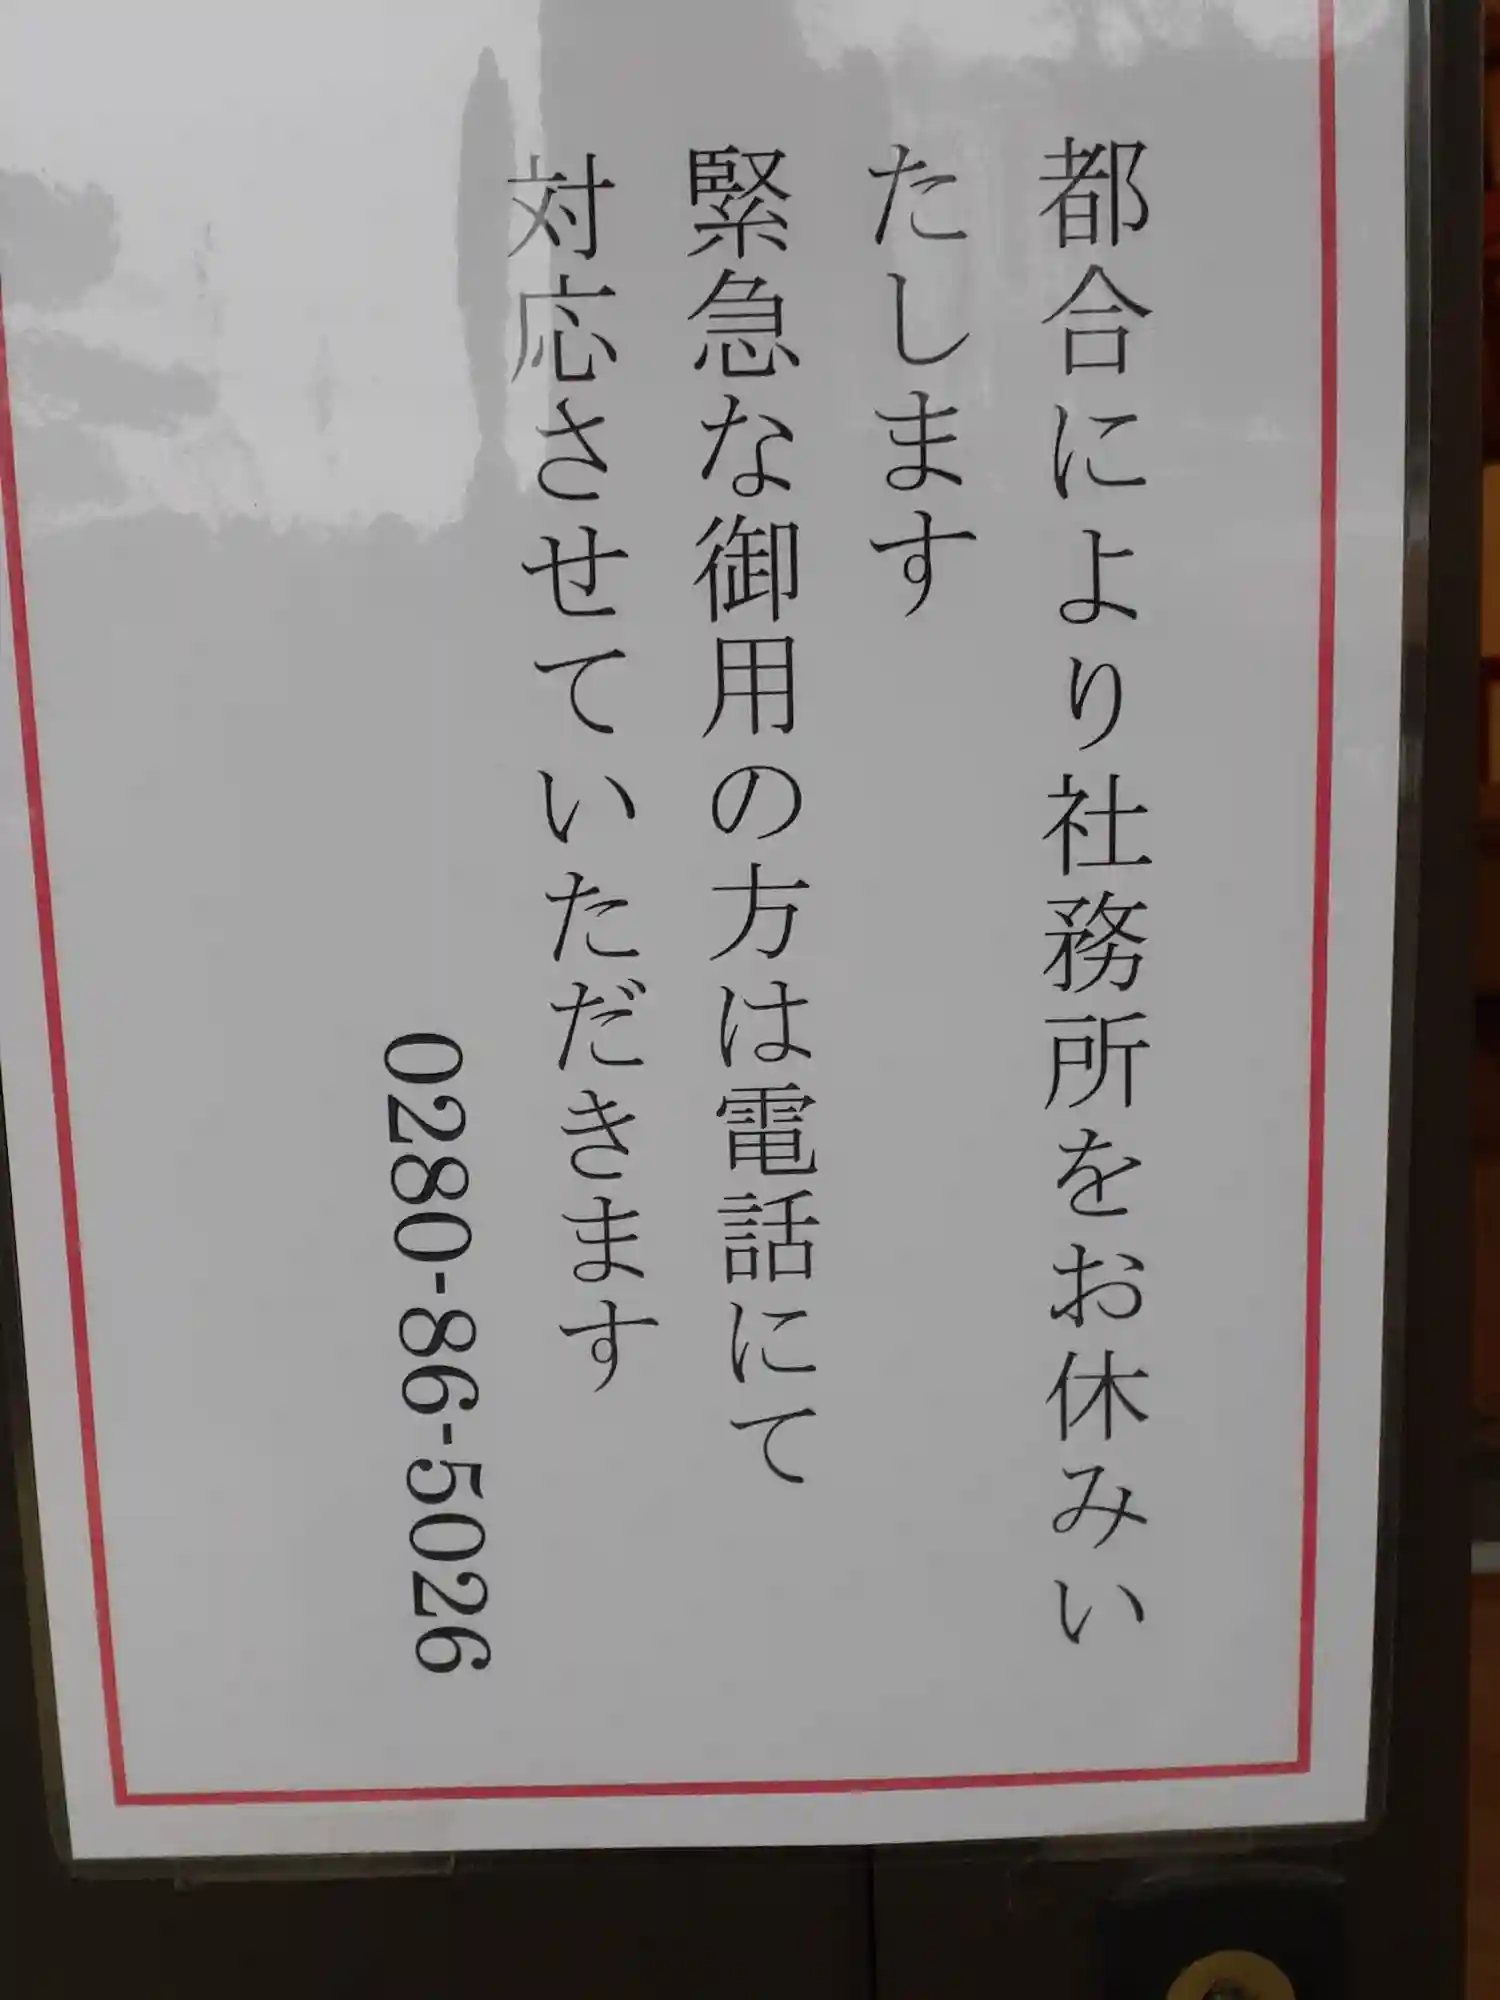 都合により社務所をお休みい
たします
緊急な御用の方は電話にて
対応させていただきます
0280-86-5026